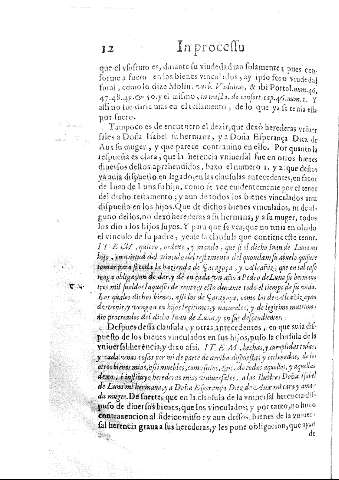 12 In processu
que el usofruto es, durante su viudedad tan solamente; pues con-
forme a fuero en los bienes vinculados, ay fuero viudedad
foral, como lo dize Molin. verb. Vidua, & ibi Portol. num. 46,
47. 48. 50. y el mismo,
assi no
por fuero.
Tampoco es de encuentro el dezir, que dexò herederas univer-
sales a Doña Isabel su hermana, y a Doña Esperança Diez de
Aux su muger, y que parece contravino en ello. Por quanto la
respuesta es clara, que la herencia universal fue en otros bienes
diversos de los aprehendidos, hasta el numero 1. y 2. que destos
ya avia dispuesto en legado, en las clausulas antecedentes, en favor
de Iuan de Luna su hijo, como se vee evidentemente por el tenor
del dicho testamento; y aun de todos los bienes vinculados avia
dispuesto en los hijos. Que de dichos bienes vinculados, ni de al-
guno dellos, no dexò herederas a su hermana, y a su muger, todos
los dio a los hijos suyos. Y para que se vea, que no tuvo en olvido
el vinculo de su padre, vease la clausula que contiene este tenor.
ITEM, quiero, ordeno, y mando, que si el dicho Iuan de Luna mi
hijo, en virtud del vinculo del testamento del quondam su abuelo quiere
tomar para si toda la hazienda de Zaragoça, y Vililacañez, que en tal caso
tenga obligacion de dar, y dè en cada un año a Pedro de Luna su hermano
tres mil sueldos Iaqueses de renta en ello durante todo el tiempo de su vida.
Los quales dichos bienes, assi los de Zaragoça, como los de
en hijos legitimos, y naturales, y de legitimo matrimo-
nio procreados del dicho Iuan de Luna, y en sus descendientes.
Despues desta clausula, y otras antecedentes, en que avia dis-
puesto de los bienes vinculados en sus hijos, puso la clausula de la
universal herencia, y dixo assi. ITEM, hechas, y cumplidas todas,
y cada unas cosas por mi de parte de arriba dispuestas, y ordenadas, de los
otros bienes mios, assi muebles, como sitios, &c. de todos aquellos, y aquellas
dexo, è instituyo herederas mias universales, a las Ilustres Doña Isabel
de Luna mi hermana, y a Doña Esperança Diez de Aux mi cara y ama-
da muger. De suerte, que en la clausula de la universal herencia dis-
puso de diversos bienes, que los vinculados; y por tanto, no huvo
contravencion al fideicomisso: y aun dessos bienes de la univer-
sal herencia grava a sus herederas, y les pone obligacion, que ayan
de